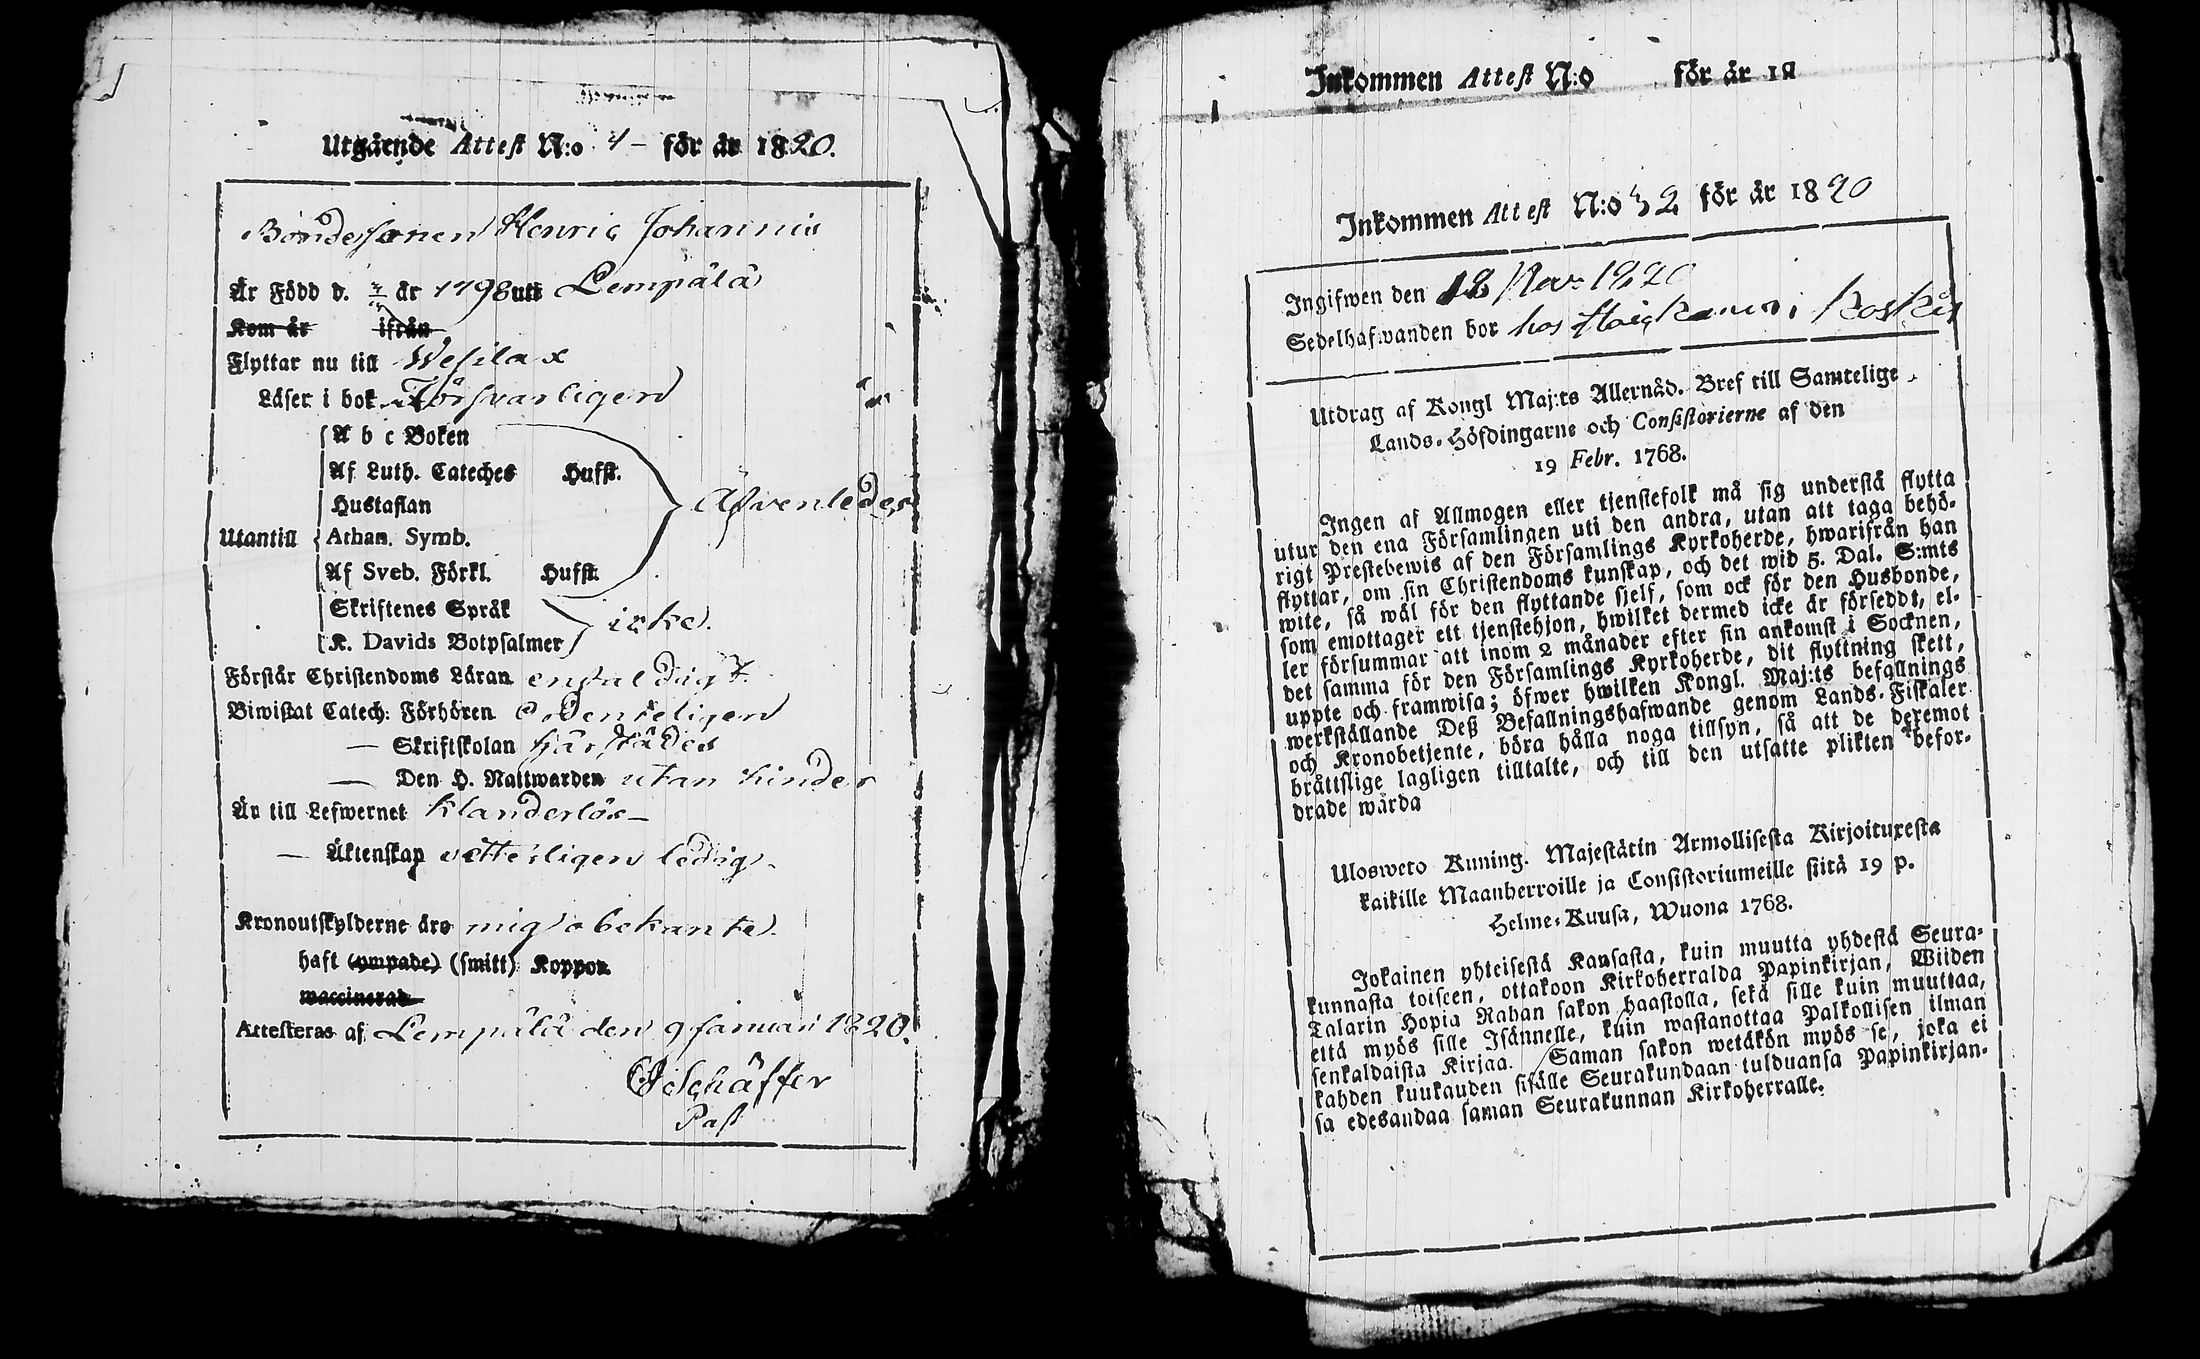 Utgående Attest N:o 4 – för år 1820.
Bondesonen Henric Johannis
Är Född d. år 1798 uti Lempälä
Kom år ifrån
Flyttar nu till Wesilax
Läser i bok Försvarligen
A b c Boken
Af Luth. Cateches Hufst.
Hustaflan
Äfvenledes
Utantill Athan. Symb.
Af Sveb. Förkl. Hufst.
Skriftenes Språk
icke.
K. Davids Botpsalmer
Förstår Christendoms Läran enfaldigt.
Biwistat Catech: Förhören Ordenteligen
— Skriftskolan härstädes
— Den H. Nattwarden utan hinder
Är till Lefwernet klanderlös –
— Äktenskap vetterligen ledig.
Kronoutskylderne äro mig obekante.
haft (ympade) (smitt) Koppor.
waccinerad
Attesteras af Lempälä den 9 Januari 1820.
Schäffer
Past
Inkommen Attest N:o för år 18
Inkommen Attest N:o 32 för år 1820
Ingifwen den 12 Nov 1820
Sedelhafwanden bor hos i Koskis
Utdrag af Kongl Maj:ts Allernåd. Bref till Samtelige
Lands-Höfdingarne och Consistorierne af den
19 Febr. 1768.
Ingen af Allmogen eller tjenstefolk må sig understå flytta
utur den ena Församlingen uti den andra, utan att taga behö-
rigt Prestebewis af den Församlings Kyrkoherde, hwarifrån han
flyttar, om sin Christendoms kunskap, och det wid 5. Dal. S:mts
wite, så wäl för den flyttande sjelf, som ock för den Husbonde,
som emottager ett tjenstehjon, hwilket dermed icke är förseddt, el-
ler försummar att inom 2 månader efter sin ankomst i Socknen,
det samma för den Församlings Kyrkoherde, dit flyttning skett,
uppte och framwisa; öfwer hwilken Kongl. Maj:ts befallnings
werkställande Deß Befallningshafwande genom Lands-Fiskaler
och Kronobetjente, böra hålla noga tillsyn, så att de deremot
bråttslige lagligen tilltalte, och till den utsatte plikten befor-
drade warda
Ulosweto Kuning. Majestätin Armollisesta Kirjoituxesta
kaikille Maanherroille ja Consistoriumeille siitä 19 p.
Helme-Kuusa, Wuona 1768.
Jokainen yhteisestä Kansasta, kuin muutta yhdestä Seura-
kunnasta toiseen, ottakoon Kirkoherralda Papinkirjan, Wiiden
Talarin Hopia Rahan sakon haastolla, sekä sille kuin muuttaa,
että myös sille Isännelle, kuin wastanottaa Palkollisen ilman
senkaldaista Kirjaa. Saman sakon wetäkön myös se, joka ei
kahden kuukauden sisälle Seurakundaan tulduansa Papinkirjan-
sa edesandaa saman Seurakunnan Kirkoherralle.